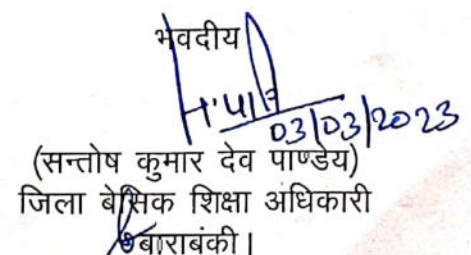 भवदीय
03/03/2023
(सन्तोष कुमार देव पाण्डेय)
जिला बेसिक शिक्षा अधिकारी
बाराबंकी।